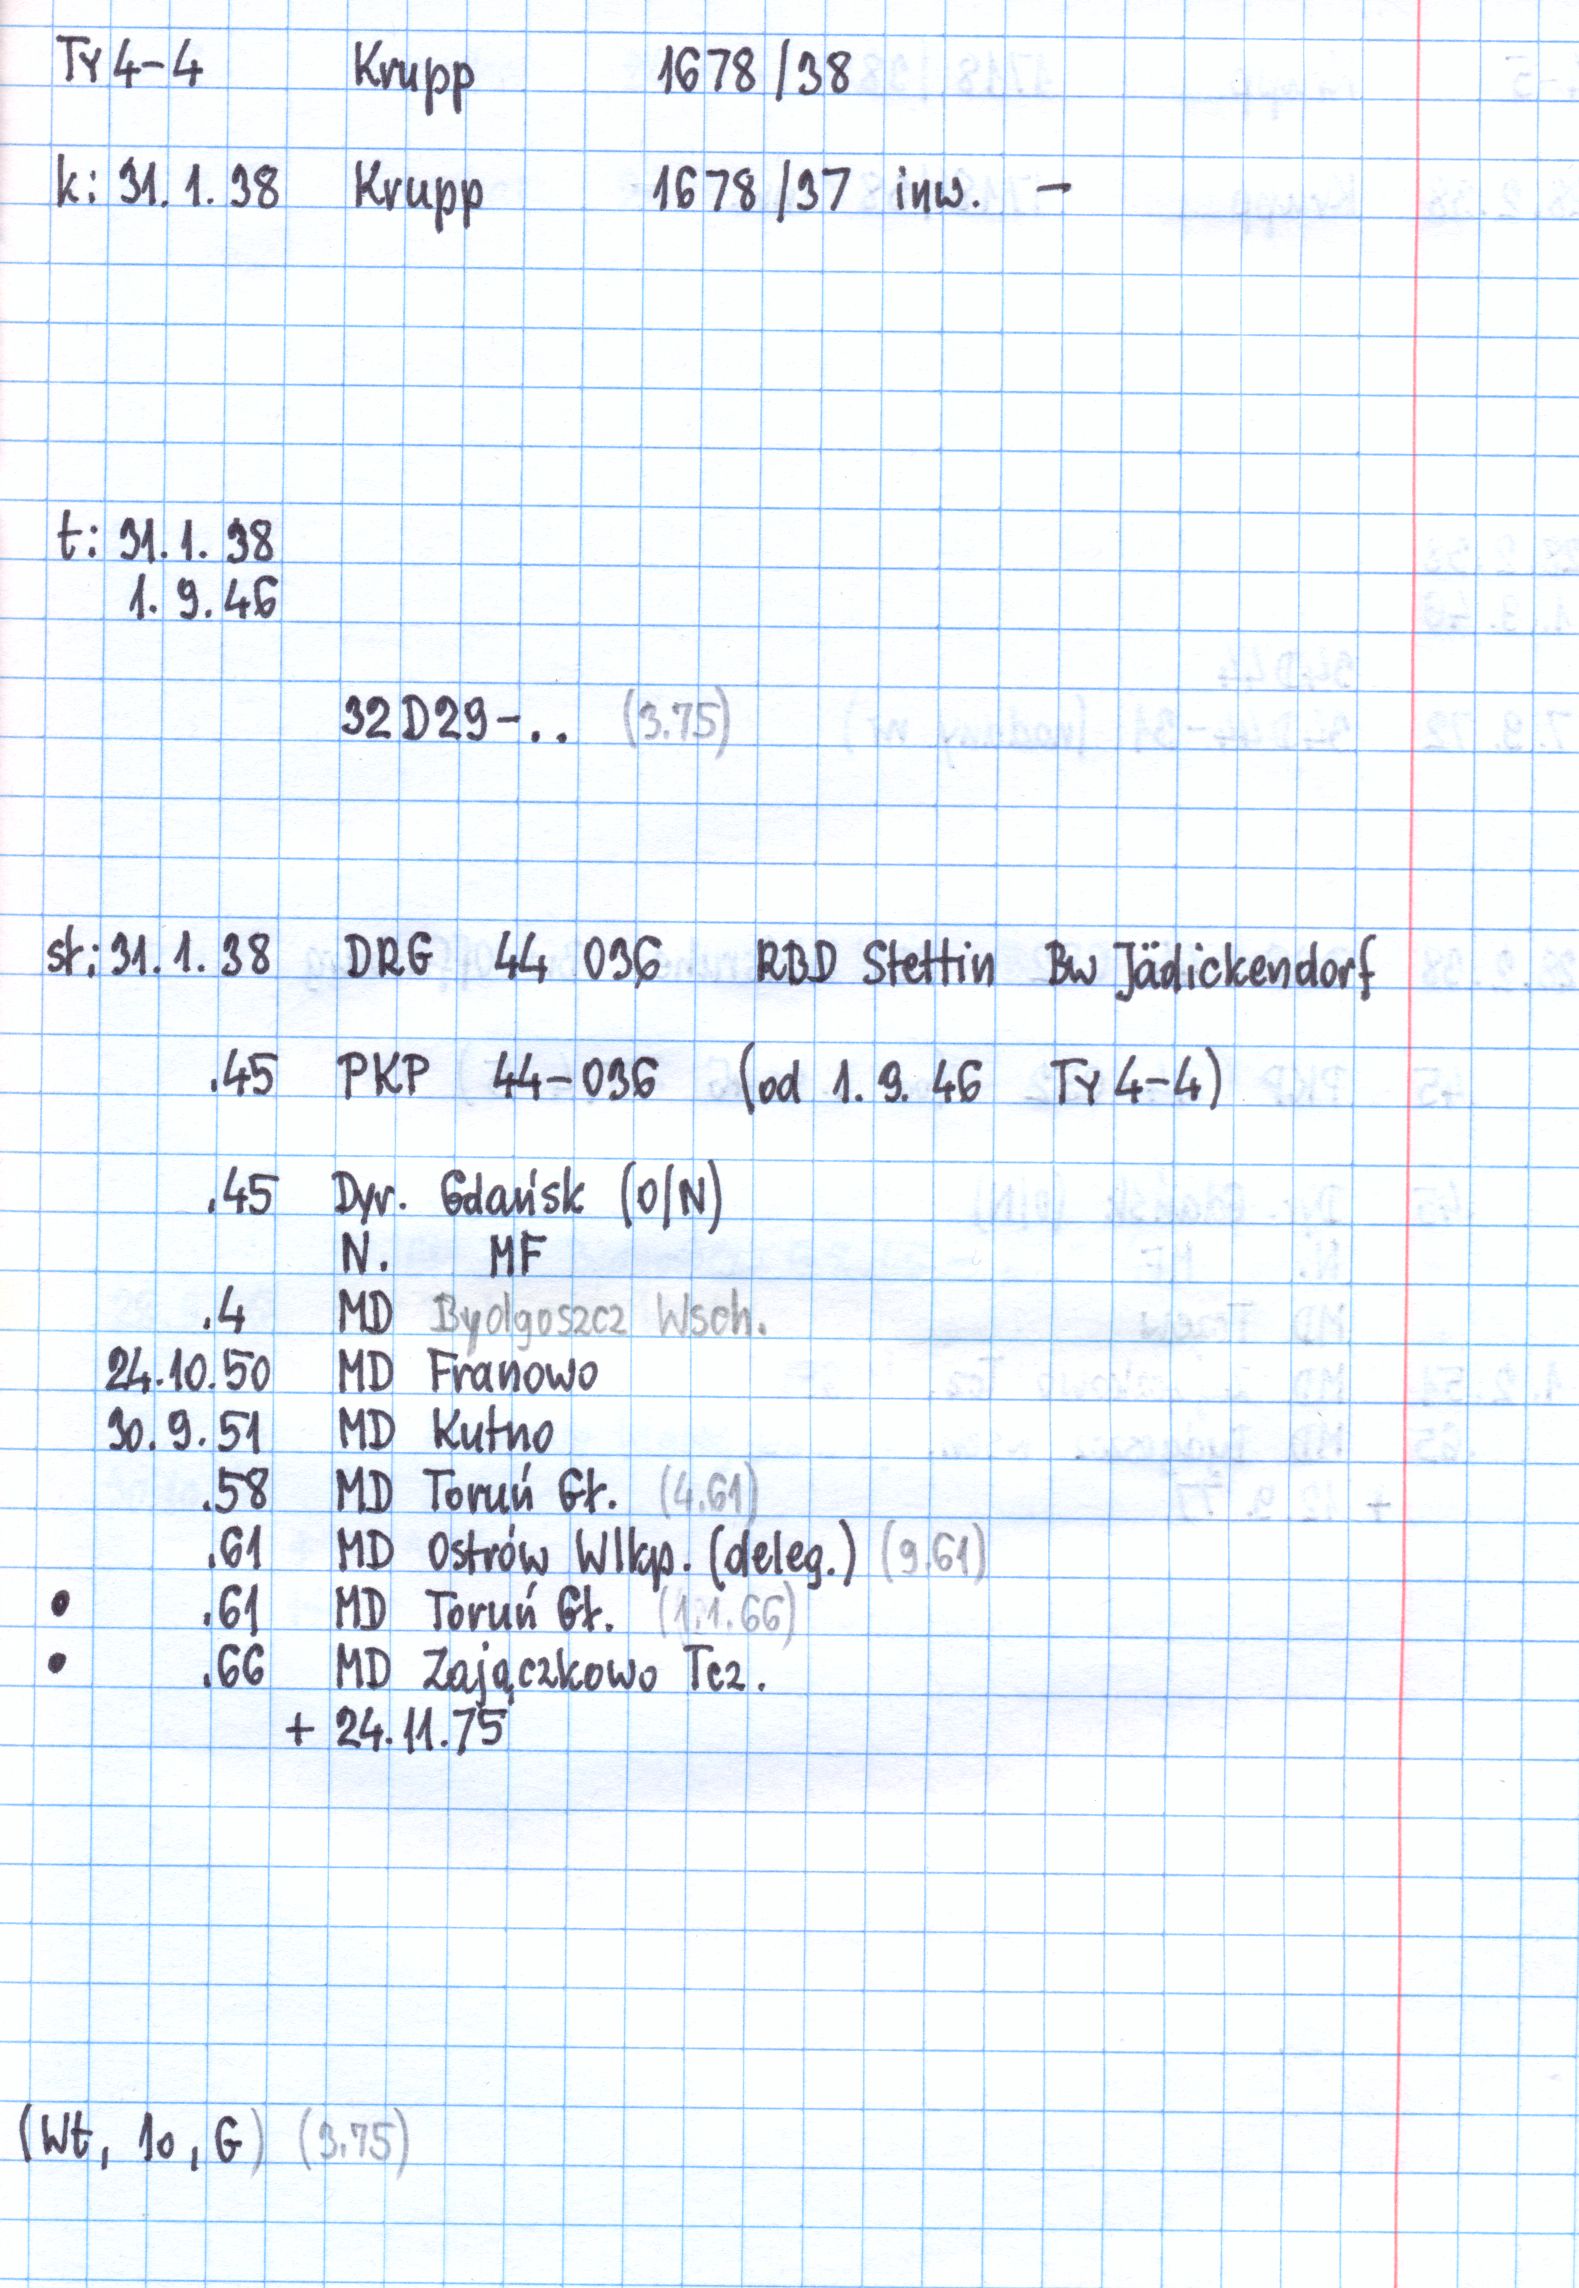 Ty4-4 Krupp 1678/38
k: 31.1.38 Krupp 1678/37 inw. -
t: 31.1.38
1.9.46
32D29-.. (3.75)
st: 31.1.38 DRG 44 036 RBD Stettin Bw Jädickendorf
.45 PKP 44-036 (od 1.9.46 Ty4-4)
.45 Dyr. Gdańsk (O/N)
N. MF
.4 MD Bydgoszcz Wsch.
24.10.50 MD Franowo
30.9.51 MD Kutno
.58 MD Toruń Gł. (4.61)
.61 MD Ostrów Wlkp. (deleg.) (9.61)
• .61 MD Toruń Gł. (1.1.66)
• .66 MD Zajączkowo Tcz.
+ 24.11.75
(Wt, 1o, G) (3.75)